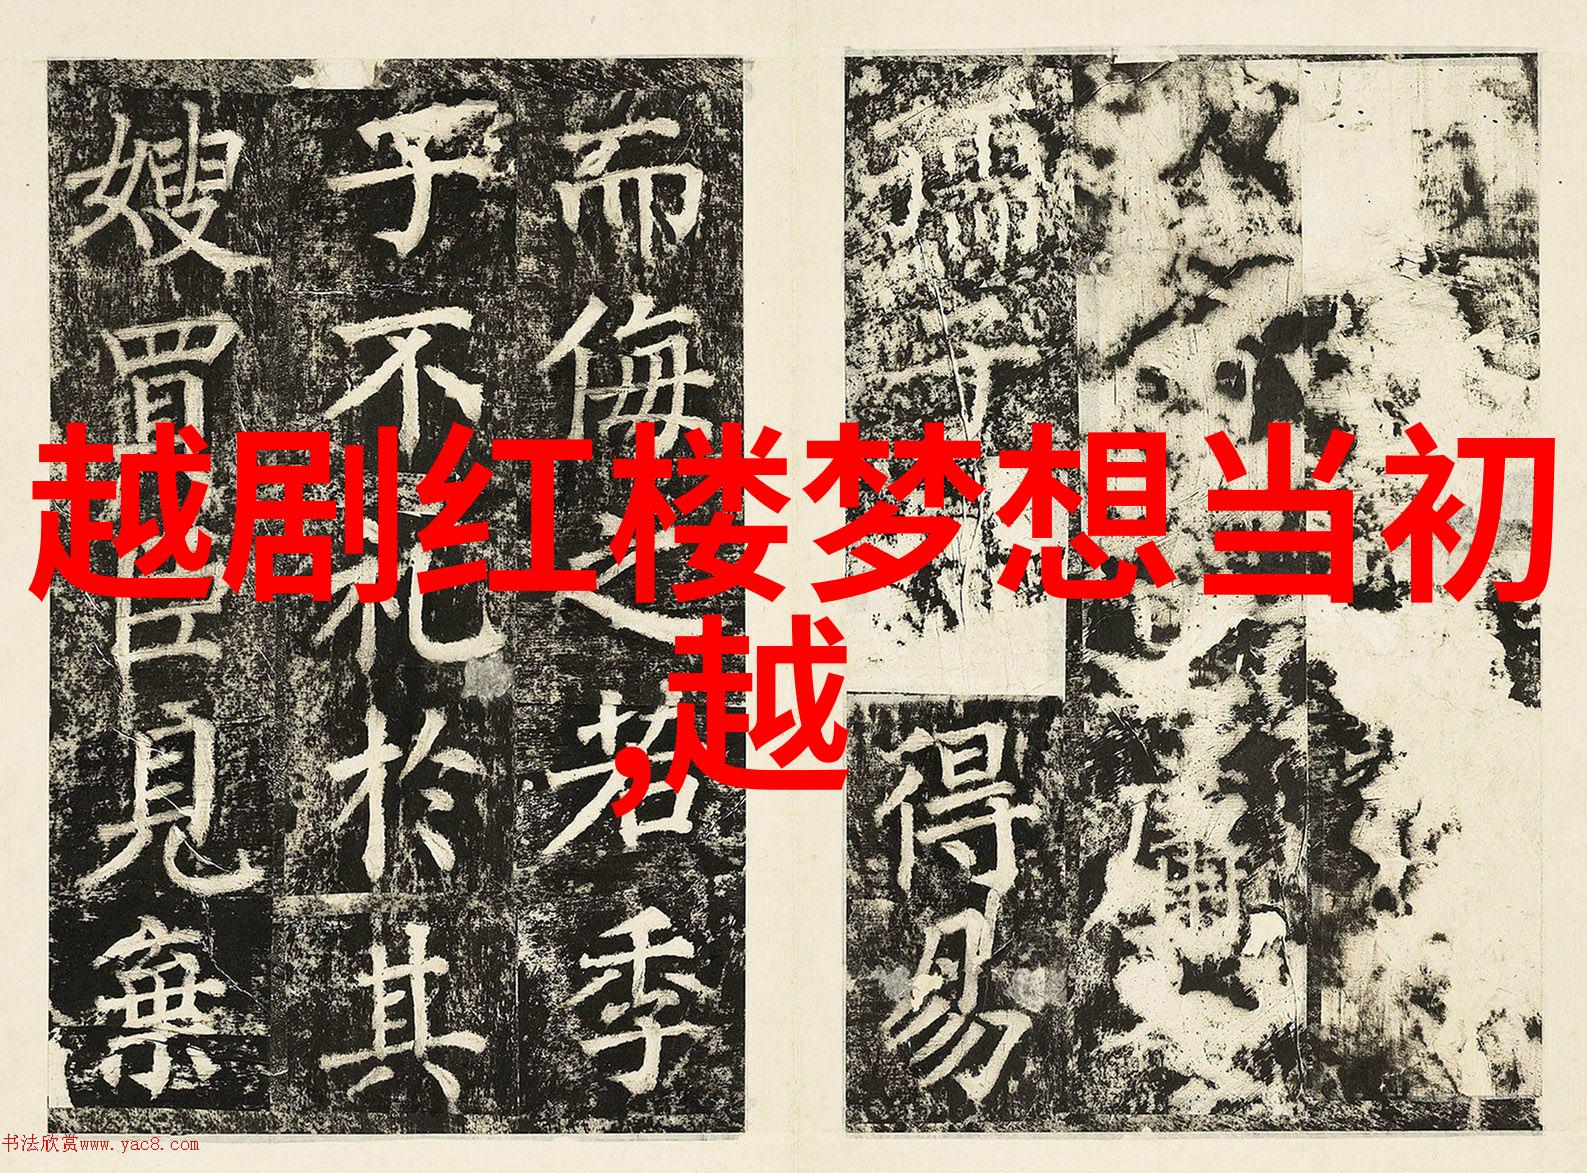 越剧红楼梦想当初
,越
而侮之若季
子不礼於其
嫂買臣見棄
得易
书法欣赏www.yac8.com